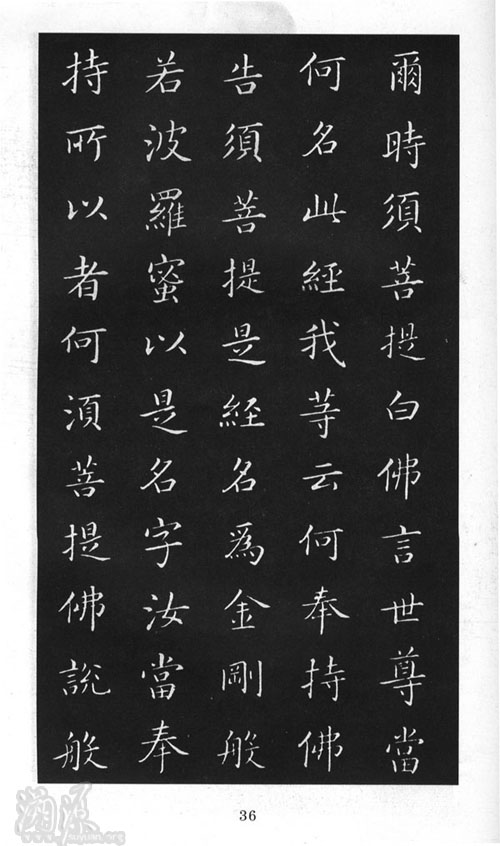 爾時須菩提白佛言世尊當
何名此經我等云何奉持佛
告須菩提是經名爲金剛般
若波羅蜜以是名字汝當奉
持所以者何須菩提佛說般
36